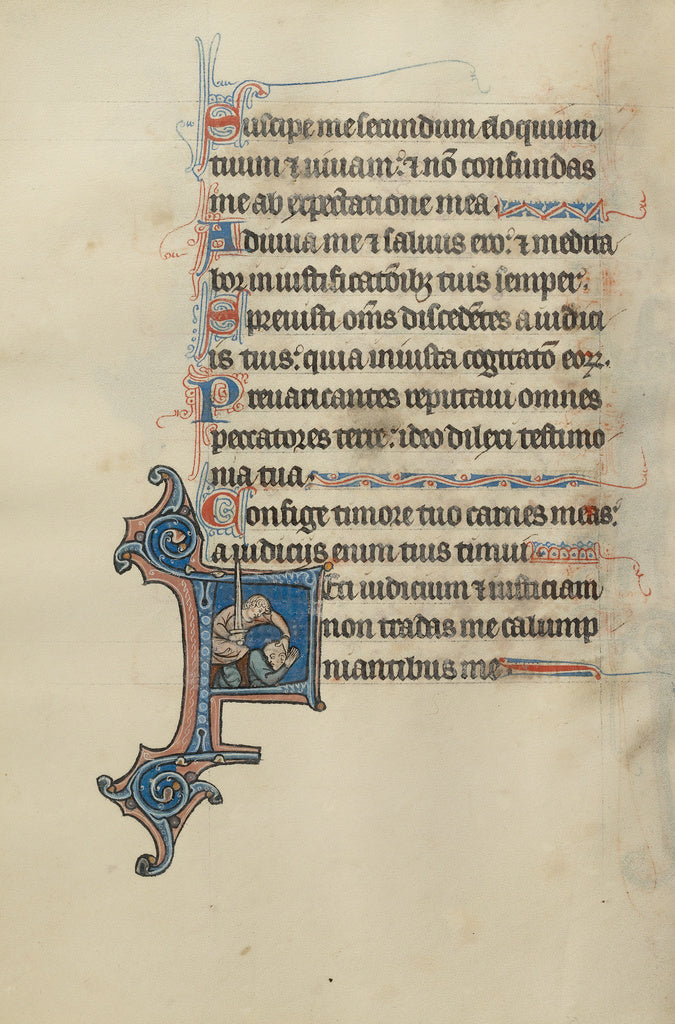 Suscipe me secundum eloquium
tuum ⁊ uiuam: ⁊ nō confundas
me ab expectatione mea.
Adiuua me ⁊ saluus ero: ⁊ medita
bor in iustificatōibꝫ tuis semper.
Spreuisti om̄s discedētes a iudici
is tuis: quia iniusta cogitatō eoꝝ.
Preuaricantes reputaui omnes
peccatores terre: ideo dilexi testimo
nia tua.
Confige timore tuo carnes meas:
a iudiciis enim tuis timui
Feci iudicium ⁊ iusticiam
non tradas me calump
niantibus me